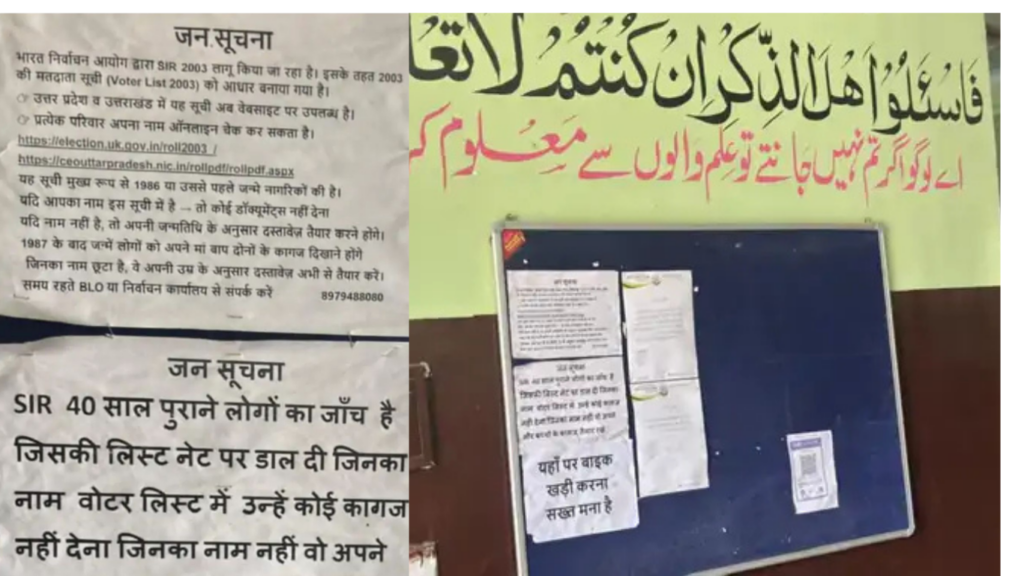 जन सूचना
भारत निर्वाचन आयोग द्वारा SIR 2003 लागू किया जा रहा है। इसके तहत 2003
की मतदाता सूची (Voter List 2003) को आधार बनाया गया है।
☞ उत्तर प्रदेश व उत्तराखंड में यह सूची अब वेबसाइट पर उपलब्ध है।
☞ प्रत्येक परिवार अपना नाम ऑनलाइन चेक कर सकता है।
https://election.uk.gov.in/roll2003_/
https://ceouttarpradesh.nic.in/rollpdf/rollpdf.aspx
यह सूची मुख्य रूप से 1986 या उससे पहले जन्मे नागरिकों की है।
यदि आपका नाम इस सूची में है → तो कोई डॉक्यूमेंट्स नहीं देना
यदि नाम नहीं है, तो अपनी जन्मतिथि के अनुसार दस्तावेज़ तैयार करने होंगे।
1987 के बाद जन्में लोगों को अपने मां बाप दोनों के कागज दिखाने होंगे
जिनका नाम छूटा है, वे अपनी उम्र के अनुसार दस्तावेज़ अभी से तैयार करें।
समय रहते BLO या निर्वाचन कार्यालय से संपर्क करें 8979488080
जन सूचना
SIR 40 साल पुराने लोगों का जाँच है
जिसकी लिस्ट नेट पर डाल दी जिनका
नाम वोटर लिस्ट में उन्हें कोई कागज
नहीं देना जिनका नाम नहीं वो अपने
فَاسْئَلُوا أَهْلَ الذِّكْرِ إِنْ كُنْتُمْ لَا تَعْا
اے لوگو اگر تم نہیں جانتے تو علم والوں سے معلوم کر
जन सूचना
SIR 40 साल पुराने लोगों का जाँच है
जिसकी लिस्ट नेट पर डाल दी जिनका
नाम वोटर लिस्ट में उन्हें कोई कागज
नहीं देना जिनका नाम नहीं वो अपने
और बच्चों के कागज तैयार रखें
यहाँ पर बाइक
खड़ी करना
सख्त मना है